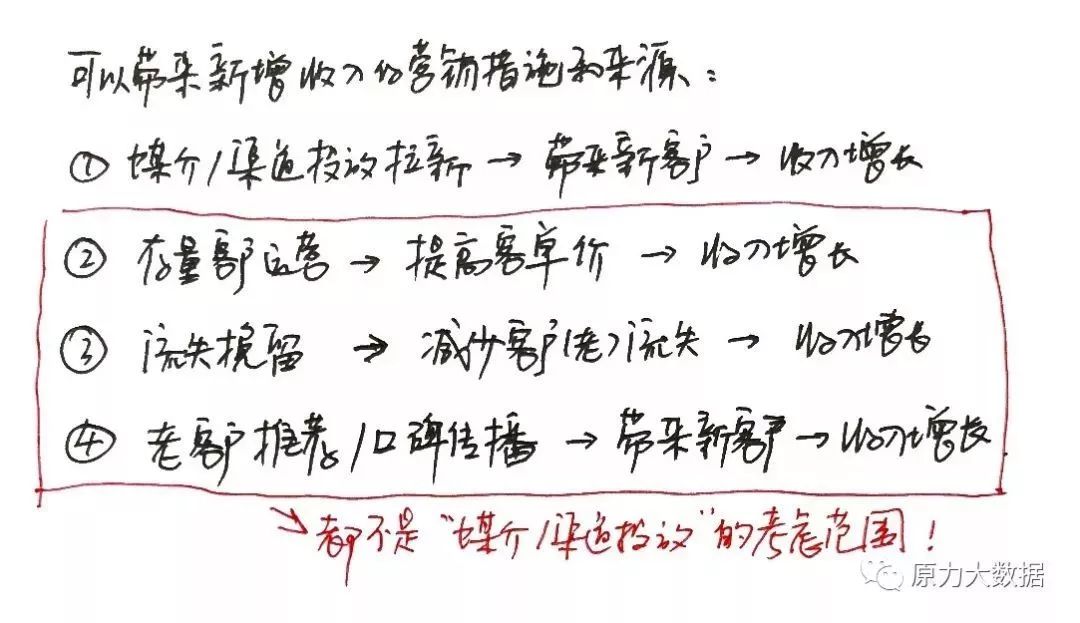 可以带来新增收入的营销措施和来源：
① 媒介/渠道投放拉新 → 带来新客户 → 收入增长
② 存量客户运营 → 提高客单价 → 收入增长
③ 流失挽留 → 减少客户(老)流失 → 收入增长
④ 老客户推荐/口碑传播 → 带来新客户 → 收入增长
都不是“媒介/渠道投放”的考虑范围！
原力大数据